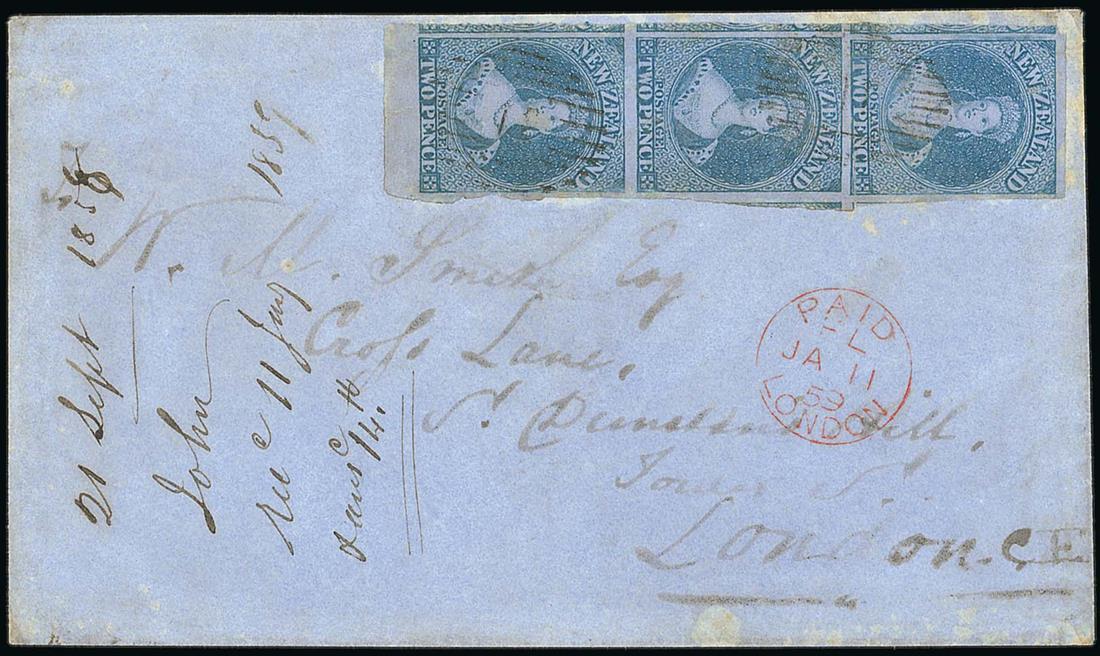 NEW ZEALAND
POSTAGE
TWO PENCE
NEW ZEALAND
POSTAGE
TWO PENCE
NEW ZEALAND
POSTAGE
TWO PENCE
W. M. Smith Esq
Cross Lane,
St. Dunstans Hill,
Tower St.
London. E.C.
PAID
JA 11
59
LONDON
21 Sept 1858
John
rec 11 Jany 1859
ans 14.th